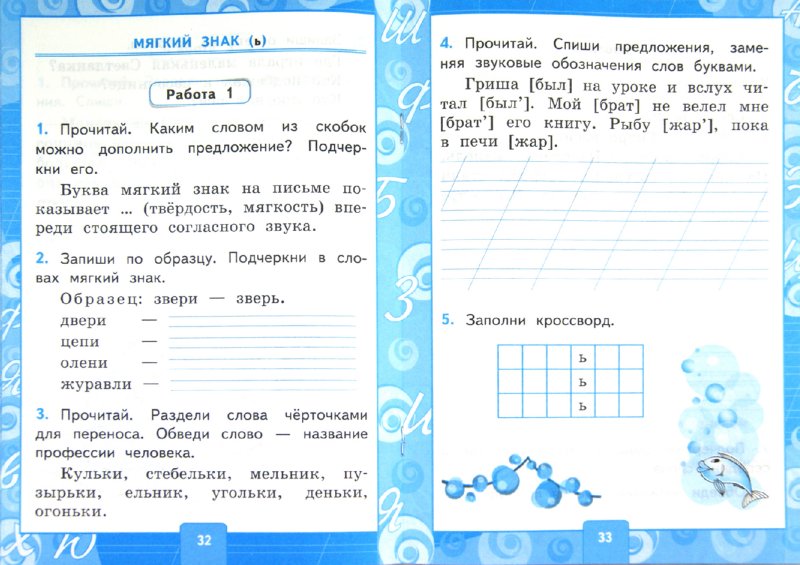 МЯГКИЙ ЗНАК (ь)
Работа 1
1. Прочитай. Каким словом из скобок
можно дополнить предложение? Подчер-
кни его.
Буква мягкий знак на письме по-
казывает ... (твёрдость, мягкость) впе-
реди стоящего согласного звука.
2. Запиши по образцу. Подчеркни в сло-
вах мягкий знак.
Образец: звери — зверь.
двери —
цепи —
олени —
журавли —
3. Прочитай. Раздели слова чёрточками
для переноса. Обведи слово — название
профессии человека.
Кульки, стебельки, мельник, пу-
зырьки, ельник, угольки, деньки,
огоньки.
32
4. Прочитай. Спиши предложения, заме-
няя звуковые обозначения слов буквами.
Гриша [был] на уроке и вслух чи-
тал [был’]. Мой [брат] не велел мне
[брат’] его книгу. Рыбу [жар’], пока
в печи [жар].
5. Заполни кроссворд.
ь
ь
ь
33